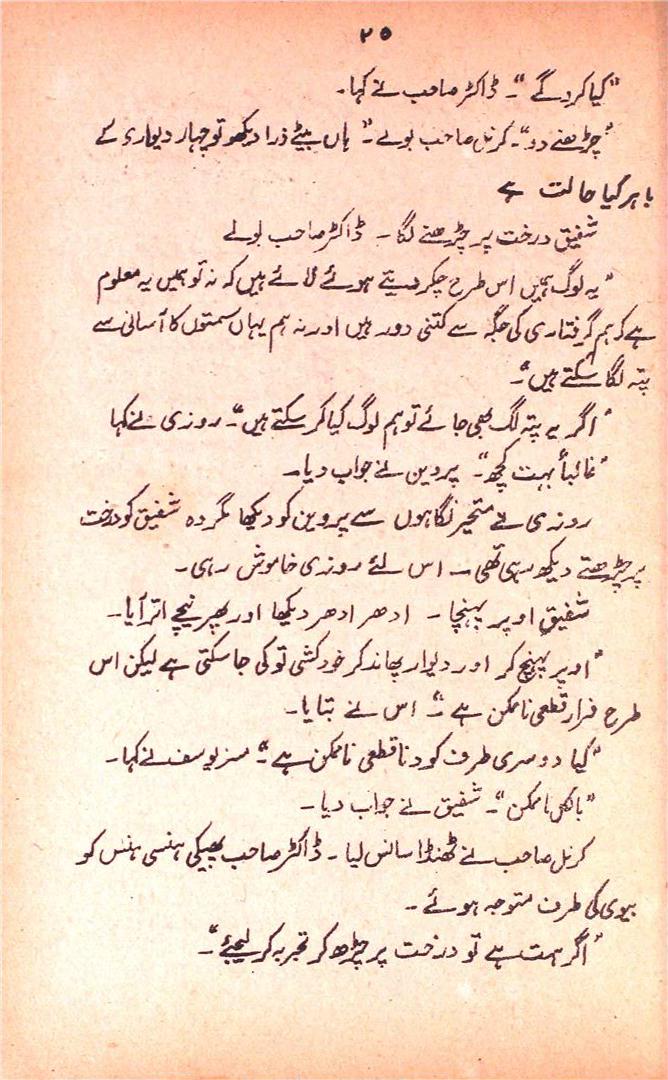 ۲۵
"کیا کرو گے"۔ ڈاکٹر صاحب نے کہا۔
"چڑھنے دو"۔ کرنل صاحب بولے۔" ہاں بیٹے ذرا دیکھو تو چہار دیواری کے
باہر کیا حالت ہے
شفیق درخت پر چڑھنے لگا۔ ڈاکٹر صاحب بولے
"یہ لوگ ہمیں اس طرح چکر دیتے ہوئے لائے ہیں کہ نہ تو ہمیں یہ معلوم
ہے کہ ہم گرفتاری کی جگہ سے کتنی دور ہیں اور نہ ہم یہاں سمتوں کا آسانی سے
پتہ لگا سکتے ہیں"۔
"اگر یہ پتہ لگ بھی جائے تو ہم لوگ کیا کر سکتے ہیں"۔ روزی نے کہا
"غالباً بہت کچھ"۔ پروین نے جواب دیا۔
روزی نے متحیر نگاہوں سے پروین کو دیکھا مگر وہ شفیق کو درخت
پر چڑھتے دیکھ رہی تھی۔ اس لئے روزی خاموش رہی۔
شفیق اوپر پہنچا۔ ادھر ادھر دیکھا اور پھر نیچے اتر آیا۔
"اوپر پہنچ کر اور دیوار پھاند کر خودکشی تو کی جا سکتی ہے لیکن اس
طرح فرار قطعی ناممکن ہے"۔ اس نے بتایا۔
"کیا دوسری طرف کودنا قطعی ناممکن ہے"۔ مسز یوسف نے کہا۔
"بالکل ناممکن"۔ شفیق نے جواب دیا۔
کرنل صاحب نے ٹھنڈا سانس لیا۔ ڈاکٹر صاحب پھیکی ہنسی ہنس کو
بیوی کی طرف متوجہ ہوئے۔
"اگر ہمت ہے تو درخت پر چڑھ کر تجربہ کر لیجئے"۔